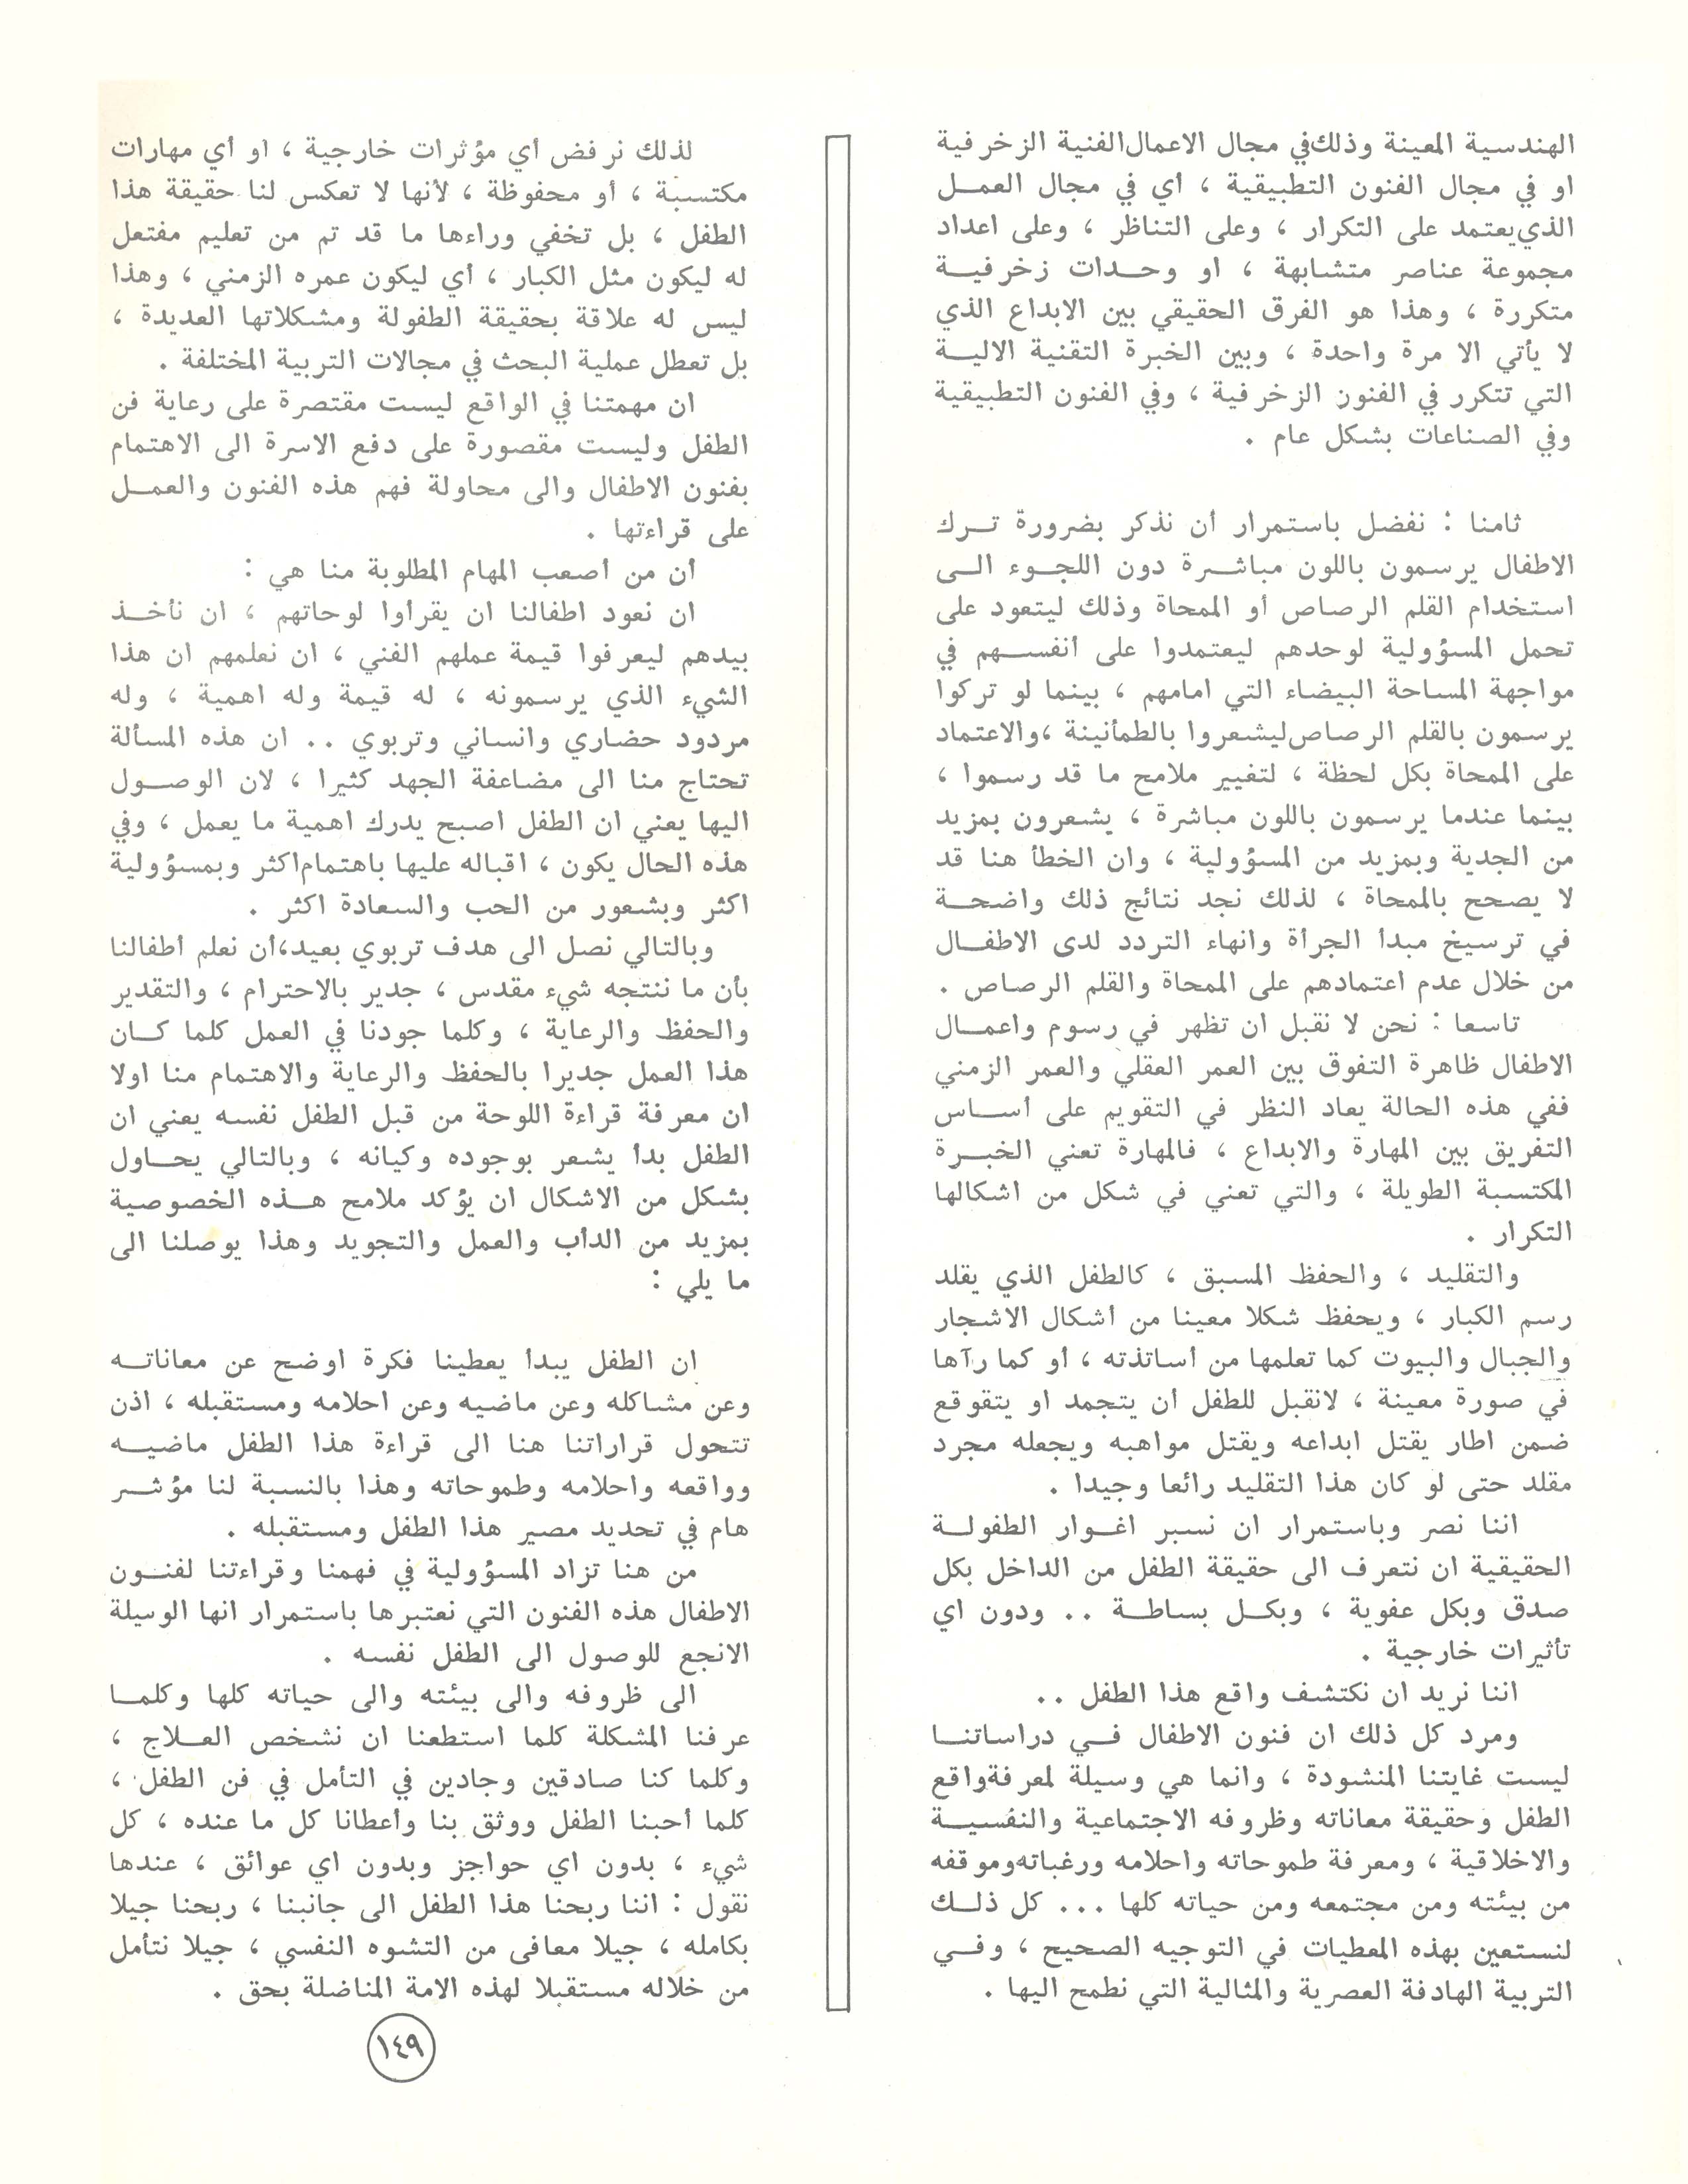 الهندسية المعينة وذلك في مجال الاعمال الفنية الزخرفية
او في مجال الفنون التطبيقية ، أي في مجال العمل
الذي يعتمد على التكرار ، وعلى التناظر ، وعلى اعداد
مجموعة عناصر متشابهة ، او وحدات زخرفية
متكررة ، وهذا هو الفرق الحقيقي بين الابداع الذي
لا يأتي الا مرة واحدة ، وبين الخبرة التقنية الالية
التي تتكرر في الفنون الزخرفية ، وفي الفنون التطبيقية
وفي الصناعات بشكل عام .
ثامنا : نفضل باستمرار أن نذكر بضرورة ترك
الاطفال يرسمون باللون مباشرة دون اللجوء الى
استخدام القلم الرصاص أو الممحاة وذلك ليتعود على
تحمل المسؤولية لوحدهم ليعتمدوا على أنفسهم في
مواجهة المساحة البيضاء التي امامهم ، بينما لو تركوا
يرسمون بالقلم الرصاص ليشعروا بالطمأنينة ، والاعتماد
على الممحاة بكل لحظة ، لتغيير ملامح ما قد رسموا ،
بينما عندما يرسمون باللون مباشرة ، يشعرون بمزيد
من الجدية وبمزيد من المسؤولية ، وان الخطأ هنا قد
لا يصحح بالممحاة ، لذلك نجد نتائج ذلك واضحة
في ترسيخ مبدأ الجرأة وانهاء التردد لدى الاطفال
من خلال عدم اعتمادهم على الممحاة والقلم الرصاص .
تاسعا : نحن لا نقبل ان تظهر في رسوم واعمال
الاطفال ظاهرة التفوق بين العمر العقلي والعمر الزمني
ففي هذه الحالة يعاد النظر في التقويم على أساس
التفريق بين المهارة والابداع ، فالمهارة تعني الخبرة
المكتسبة الطويلة ، والتي تعني في شكل من اشكالها
التكرار .
والتقليد ، والحفظ المسبق ، كالطفل الذي يقلد
رسم الكبار ، ويحفظ شكلا معينا من أشكال الاشجار
والجبال والبيوت كما تعلمها من أساتذته ، أو كما رآها
في صورة معينة ، لانقبل للطفل أن يتجمد او يتقوقع
ضمن اطار يقتل ابداعه ويقتل مواهبه ويجعله مجرد
مقلد حتى لو كان هذا التقليد رائعا وجيدا .
اننا نصر وباستمرار ان نسبر اغوار الطفولة
الحقيقية ان نتعرف الى حقيقة الطفل من الداخل بكل
صدق وبكل عفوية ، وبكل بساطة .. ودون اي
تأثيرات خارجية .
اننا نريد ان نكتشف واقع هذا الطفل ..
ومرد كل ذلك ان فنون الاطفال في دراساتنا
ليست غايتنا المنشودة ، وانما هي وسيلة لمعرفة واقع
الطفل وحقيقة معاناته وظروفه الاجتماعية والنفسية
والاخلاقية ، ومعرفة طموحاته واحلامه ورغباته وموقفه
من بيئته ومن مجتمعه ومن حياته كلها ... كل ذلك
لنستعين بهذه المعطيات في التوجيه الصحيح ، وفي
التربية الهادفة العصرية والمثالية التي نطمح اليها .
لذلك نرفض أي مؤثرات خارجية ، او أي مهارات
مكتسبة ، أو محفوظة ، لأنها لا تعكس لنا حقيقة هذا
الطفل ، بل تخفي وراءها ما قد تم من تعليم مفتعل
له ليكون مثل الكبار ، أي ليكون عمره الزمني ، وهذا
ليس له علاقة بحقيقة الطفولة ومشكلاتها العديدة ،
بل تعطل عملية البحث في مجالات التربية المختلفة .
ان مهمتنا في الواقع ليست مقتصرة على رعاية فن
الطفل وليست مقصورة على دفع الاسرة الى الاهتمام
بفنون الاطفال والى محاولة فهم هذه الفنون والعمل
على قراءتها .
أن من أصعب المهام المطلوبة منا هي :
ان نعود اطفالنا ان يقرأوا لوحاتهم ، ان نأخذ
بيدهم ليعرفوا قيمة عملهم الفني ، ان نعلمهم ان هذا
الشيء الذي يرسمونه ، له قيمة وله اهمية ، وله
مردود حضاري وانساني وتربوي .. ان هذه المسألة
تحتاج منا الى مضاعفة الجهد كثيرا ، لان الوصول
اليها يعني ان الطفل اصبح يدرك اهمية ما يعمل ، وفي
هذه الحال يكون ، اقباله عليها باهتمام اكثر وبمسؤولية
اكثر وبشعور من الحب والسعادة اكثر .
وبالتالي نصل الى هدف تربوي بعيد ، أن نعلم أطفالنا
بأن ما ننتجه شيء مقدس ، جدير بالاحترام ، والتقدير
والحفظ والرعاية ، وكلما جودنا في العمل كلما كان
هذا العمل جديرا بالحفظ والرعاية والاهتمام منا اولا
ان معرفة قراءة اللوحة من قبل الطفل نفسه يعني ان
الطفل بدأ يشعر بوجوده وكيانه ، وبالتالي يحاول
بشكل من الاشكال ان يؤكد ملامح هذه الخصوصية
بمزيد من الدأب والعمل والتجويد وهذا يوصلنا الى
ما يلي :
ان الطفل يبدأ يعطينا فكرة اوضح عن معاناته
وعن مشاكله وعن ماضيه وعن احلامه ومستقبله ، اذن
تتحول قراراتنا هنا الى قراءة هذا الطفل ماضيه
وواقعه واحلامه وطموحاته وهذا بالنسبة لنا مؤشر
هام في تحديد مصير هذا الطفل ومستقبله .
من هنا تزاد المسؤولية في فهمنا وقراءتنا لفنون
الاطفال هذه الفنون التي نعتبرها باستمرار انها الوسيلة
الانجع للوصول الى الطفل نفسه .
الى ظروفه والى بيئته والى حياته كلها وكلما
عرفنا المشكلة كلما استطعنا ان نشخص العلاج ،
وكلما كنا صادقين وجادين في التأمل في فن الطفل ،
كلما أحبنا الطفل ووثق بنا وأعطانا كل ما عنده ، كل
شيء ، بدون اي حواجز وبدون اي عوائق ، عندها
نقول : اننا ربحنا هذا الطفل الى جانبنا ، ربحنا جيلا
بكامله ، جيلا معافى من التشوه النفسي ، جيلا نتأمل
من خلاله مستقبلا لهذه الامة المناضلة بحق .
١٤٩